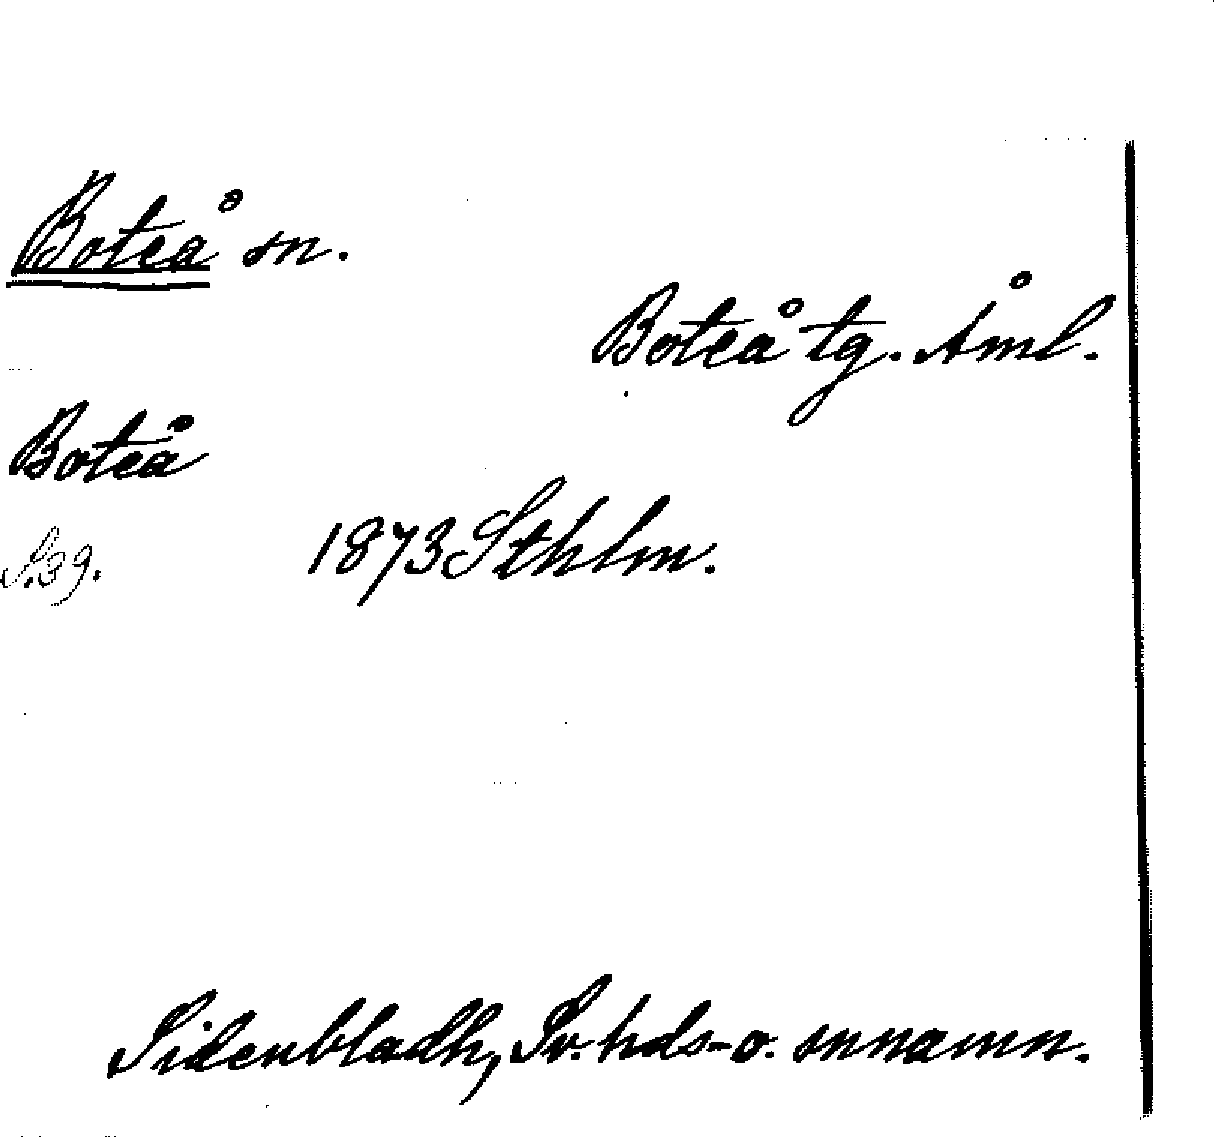 Boteå sn.
Boteå tg. Åml.
Boteå
S.39. 1873 Sthlm.
Sidenbladh, Sv. hds- o. snnamn.